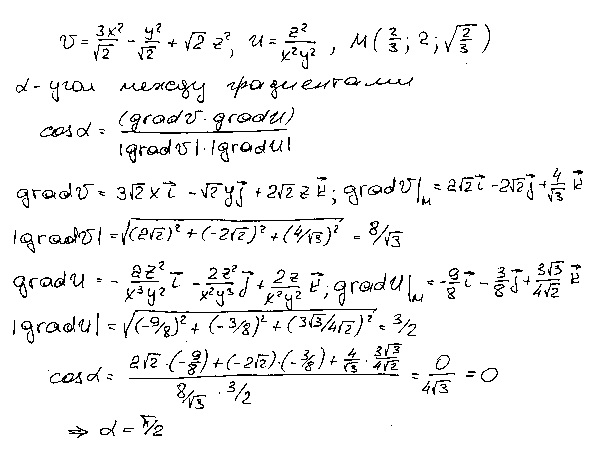 V = 3x²/√2 - y²/√2 + √2 z², U = z²/(x²y²), M(2/3; 2; √(2/3))
α - угол между градиентами
cosα = (gradV · gradU) / (|gradV|·|gradU|)
gradV = 3√2 x i⃗ - √2 y j⃗ + 2√2 z k⃗; gradV|ₘ = 2√2 i⃗ - 2√2 j⃗ + 4/√3 k⃗
|gradV| = √((2√2)² + (-2√2)² + (4/√3)²) = 8/√3
gradU = - 2z²/(x³y²) i⃗ - 2z²/(x²y³) j⃗ + 2z/(x²y²) k⃗; gradU|ₘ = -9/8 i⃗ - 3/8 j⃗ + 3√3/(4√2) k⃗
|gradU| = √((-9/8)² + (-3/8)² + (3√3/4√2)²) = 3/2
cosα = (2√2 · (-9/8) + (-2√2)·(-3/8) + 4/√3 · 3√3/(4√2)) / (8/√3 · 3/2) = 0/(4√3) = 0
⇒ α = π/2